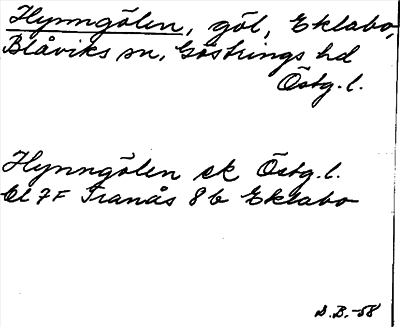 Hynngölen, göl, Eklabo,
Blåviks sn, Göstrings hd
Östg. l.
Hynngölen ek Östg. l.
bl 7F Tranås 8 b Eklabo
S.B.-58